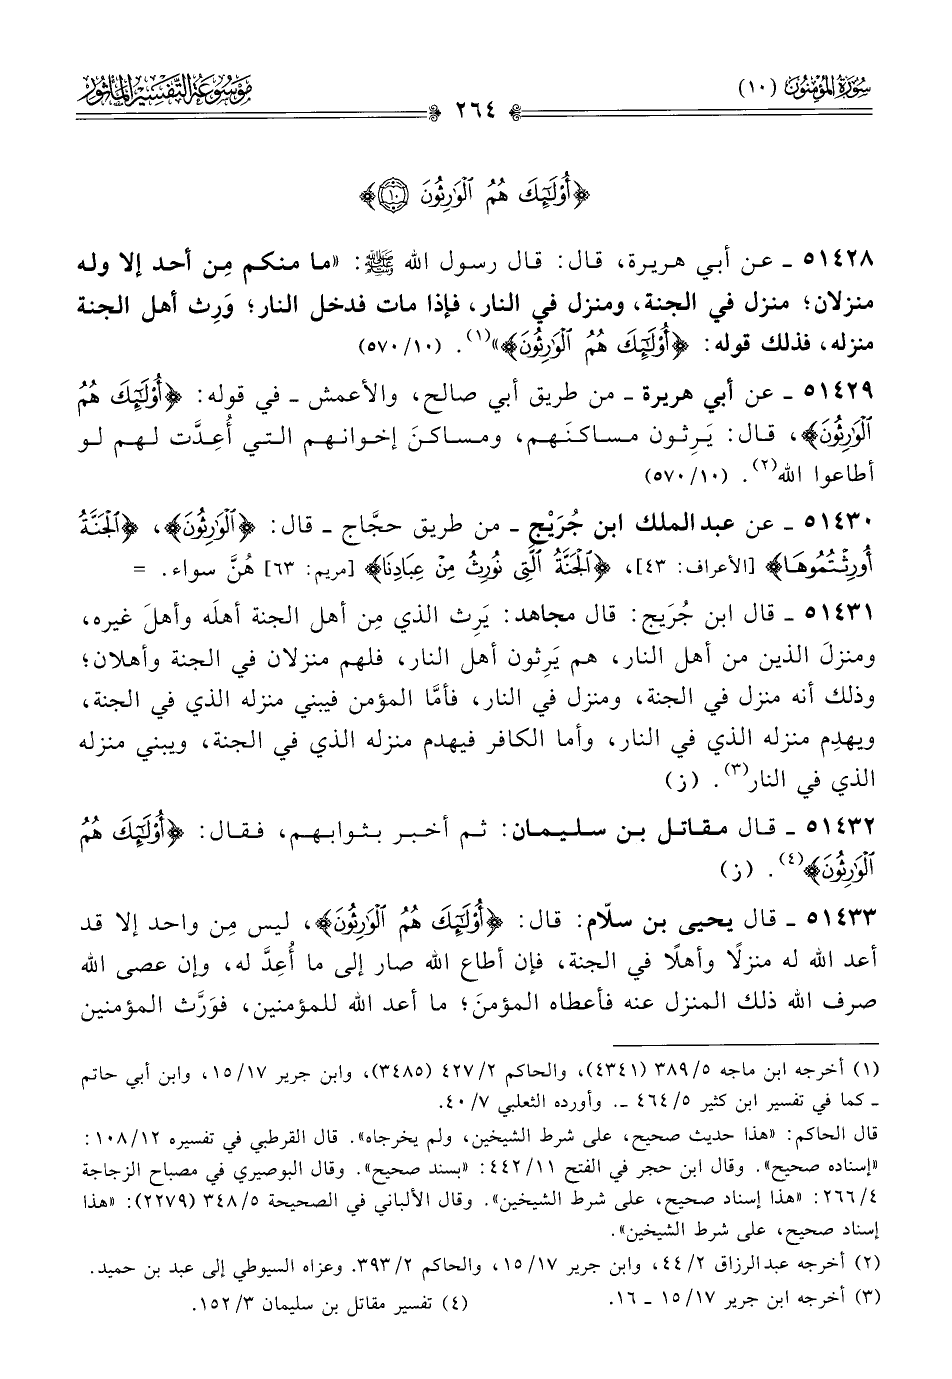 سُورَةُ المُؤْمِنُونَ (١٠)
موسوعة التفسير المأثور
٢٦٤
﴿أُوْلَٰٓئِكَ هُمُ ٱلْوَٰرِثُونَ ١٠﴾
٥١٤٢٨ ـ عن أبي هريرة، قال: قال رسول الله ﷺ: «ما منكم مِن أحد إلا وله
منزلان؛ منزل في الجنة، ومنزل في النار، فإذا مات فدخل النار؛ وَرِث أهل الجنة
منزله، فذلك قوله: ﴿أُوْلَٰٓئِكَ هُمُ ٱلْوَٰرِثُونَ﴾»(١). (١٠/ ٥٧٠)
٥١٤٢٩ ـ عن أبي هريرة ـ من طريق أبي صالح، والأعمش ـ في قوله: ﴿أُوْلَٰٓئِكَ هُمُ
ٱلْوَٰرِثُونَ﴾، قال: يَرِثون مساكنَهم، ومساكنَ إخوانهم التي أُعِدَّت لهم لو
أطاعوا الله(٢). (١٠/ ٥٧٠)
٥١٤٣٠ ـ عن عبد الملك ابن جُرَيْج ـ من طريق حجَّاج ـ قال: ﴿ٱلْوَٰرِثُونَ﴾، ﴿ٱلْجَنَّةُ
أُورِثْتُمُوهَا﴾ [الأعراف: ٤٣]، ﴿ٱلْجَنَّةُ ٱلَّتِى نُورِثُ مِنْ عِبَادِنَا﴾ [مريم: ٦٣] هُنَّ سواء. =
٥١٤٣١ ـ قال ابن جُرَيج: قال مجاهد: يَرِث الذي مِن أهل الجنة أهلَه وأهلَ غيره،
ومنزلَ الذين من أهل النار، هم يَرِثون أهل النار، فلهم منزلان في الجنة وأهلان؛
وذلك أنه منزل في الجنة، ومنزل في النار، فأمَّا المؤمن فيبني منزله الذي في الجنة،
ويهدِم منزله الذي في النار، وأما الكافر فيهدم منزله الذي في الجنة، ويبني منزله
الذي في النار(٣). (ز)
٥١٤٣٢ ـ قال مقاتل بن سليمان: ثم أخبر بثوابهم، فقال: ﴿أُوْلَٰٓئِكَ هُمُ
ٱلْوَٰرِثُونَ﴾(٤). (ز)
٥١٤٣٣ ـ قال يحيى بن سلّام: قال: ﴿أُوْلَٰٓئِكَ هُمُ ٱلْوَٰرِثُونَ﴾، ليس مِن واحد إلا قد
أعد الله له منزلًا وأهلًا في الجنة، فإن أطاع الله صار إلى ما أُعِدَّ له، وإن عصى الله
صرف الله ذلك المنزل عنه فأعطاه المؤمنَ؛ ما أعد الله للمؤمنين، فوَرَّث المؤمنين
(١) أخرجه ابن ماجه ٥/ ٣٨٩ (٤٣٤١)، والحاكم ٢/ ٤٢٧ (٣٤٨٥)، وابن جرير ١٧/ ١٥، وابن أبي حاتم
ـ كما في تفسير ابن كثير ٥/ ٤٦٤ ـ. وأورده الثعلبي ٧/ ٤٠.
قال الحاكم: «هذا حديث صحيح، على شرط الشيخين، ولم يخرجاه». قال القرطبي في تفسيره ١٢/ ١٠٨:
«إسناده صحيح». وقال ابن حجر في الفتح ١١/ ٤٤٢: «بسند صحيح». وقال البوصيري في مصباح الزجاجة
٤/ ٢٦٦: «هذا إسناد صحيح، على شرط الشيخين». وقال الألباني في الصحيحة ٥/ ٣٤٨ (٢٢٧٩): «هذا
إسناد صحيح، على شرط الشيخين».
(٢) أخرجه عبد الرزاق ٢/ ٤٤، وابن جرير ١٧/ ١٥، والحاكم ٢/ ٣٩٣. وعزاه السيوطي إلى عبد بن حميد.
(٣) أخرجه ابن جرير ١٧/ ١٥ ـ ١٦.
(٤) تفسير مقاتل بن سليمان ٣/ ١٥٢.